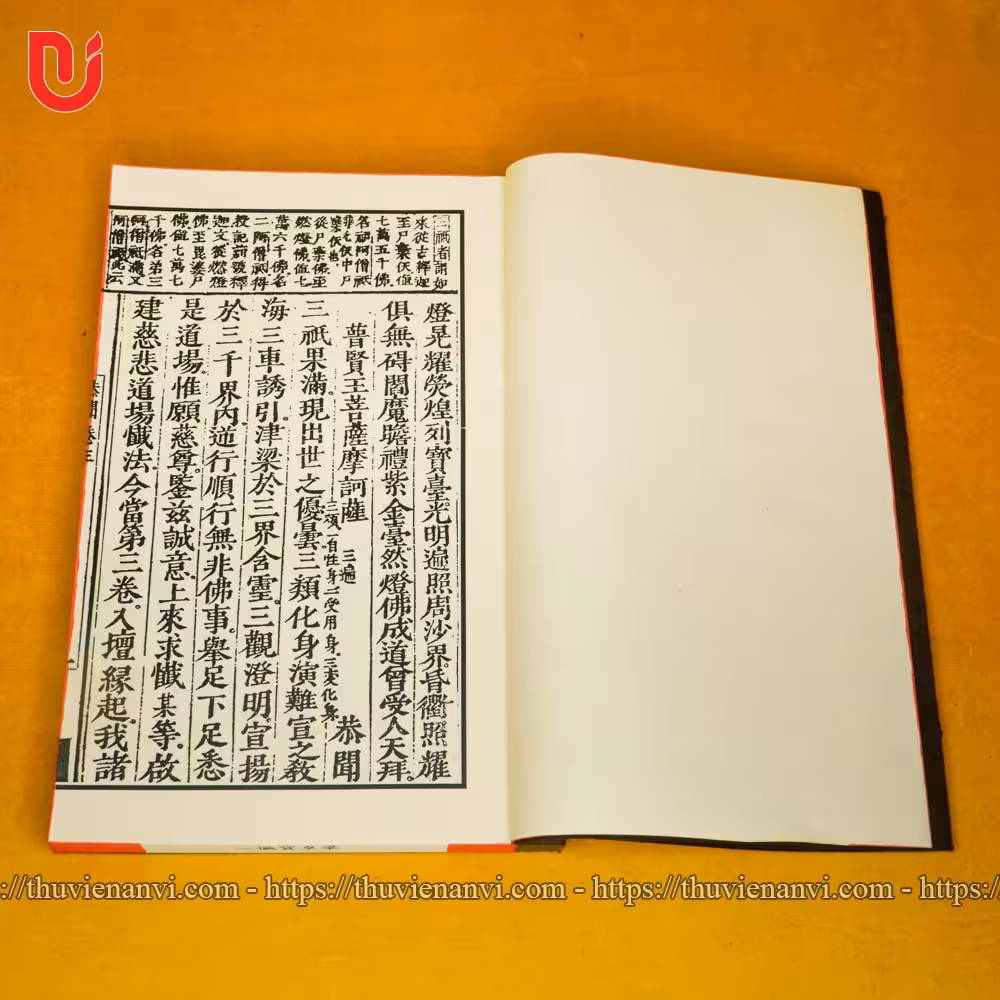 三祇者謂如
來從古釋迦
至尸棄佛值
七萬五千佛
名初阿僧祇
非七佛中尸
棄佛也
從尸棄佛至
然燈佛值七
萬六千佛名
二阿僧祇得
授記莂號釋
迦文從燃燈
佛至毘婆尸
佛值七萬七
千佛名第三
阿僧祇滿又
阿僧祇此云
燈晃耀熒煌列寶臺光明遍照周沙界昏衢照耀
俱無碍閻魔瞻禮紫金臺然燈佛成道曾受人天拜。
普賢王菩薩摩訶薩 三遍 恭聞
三祇果滿。現出世之優曇三類化身演難宣之教
三類一自性身二受用身三変化身
海三車誘引。津梁於三界含霊。三觀澄明。宣揚
於三千界內。逆行順行無非佛事。舉足下足悉
是道場。惟願慈尊。鑒茲誠意。上來求懺某等。啟
建慈悲道場懺法。今當第三卷。入壇緣起。我諸
恭聞卷三
https://thuvienanvi.com - https://thuvienanvi.com - https://thuvienanvi.com - https